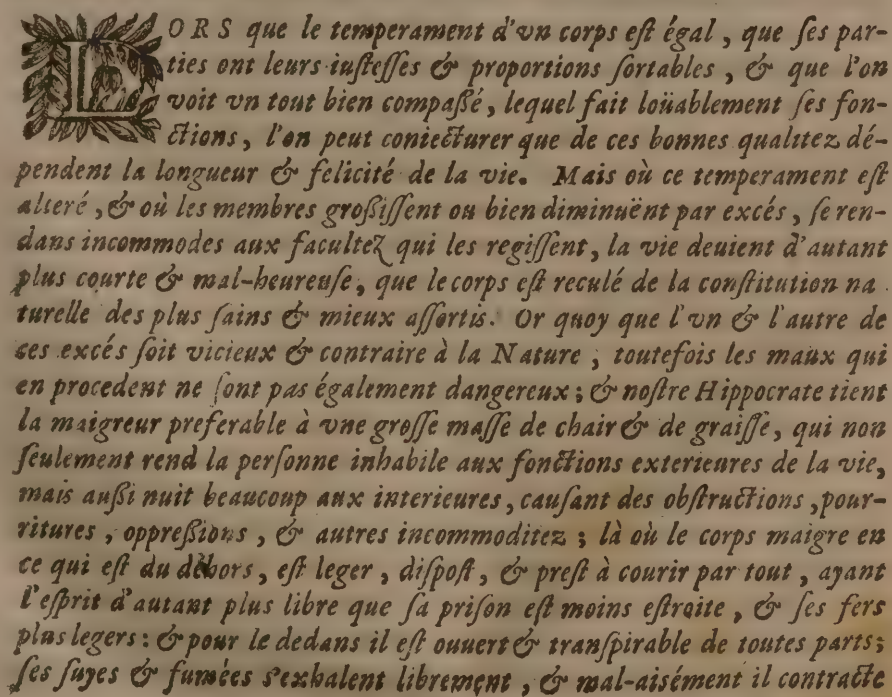 LORS que le temperament d'vn corps eſt égal, que ſes par-
ties ont leurs iuſteſſes & proportions ſortables, & que l'on
voit vn tout bien compaßé, lequel fait loüablement ſes fon-
ctions, l'on peut coniecturer que de ces bonnes qualitez dé-
pendent la longueur & felicité de la vie. Mais où ce temperament eſt
alteré, & où les membres großiſſent ou bien diminuënt par excés, ſe ren-
dans incommodes aux facultez qui les regiſſent, la vie deuient d'autant
plus courte & mal-heureuſe, que le corps eſt reculé de la conſtitution na
turelle des plus ſains & mieux aſſortis. Or quoy que l'vn & l'autre de
ces excés ſoit vicieux & contraire à la Nature, toutefois les maux qui
en procedent ne ſont pas également dangereux; & noſtre Hippocrate tient
la maigreur preferable à vne groſſe maſſe de chair & de graiſſe, qui non
ſeulement rend la perſonne inhabile aux fonctions exterieures de la vie,
mais außi nuit beaucoup aux interieures, cauſant des obſtructions, pour-
ritures, oppreßions, & autres incommoditez; là où le corps maigre en
ce qui eſt du dehors, eſt leger, diſpoſt, & preſt à courir par tout, ayant
l'eſprit d'autant plus libre que ſa priſon eſt moins eſtroite, & ſes fers
plus legers: & pour le dedans il eſt ouuert & tranſpirable de toutes parts;
ſes ſuyes & fumées s'exhalent librement, & mal-aisément il contracte